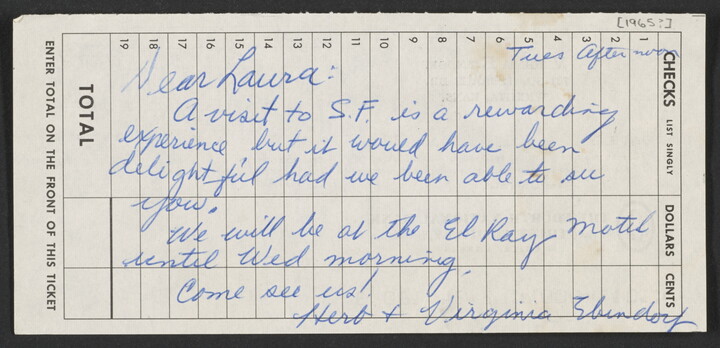 [1965?]
Tues Afternoon
Dear Laura:
A visit to S.F. is a rewarding
experience but it would have been
delightful had we been able to see
you.
We will be at the El Ray Motel
until Wed morning.
Come see us!
Herb + Virginia Ebindorf
CHECKS LIST SINGLY
DOLLARS
CENTS
1
2
3
4
5
6
7
8
9
10
11
12
13
14
15
16
17
18
19
TOTAL
ENTER TOTAL ON THE FRONT OF THIS TICKET